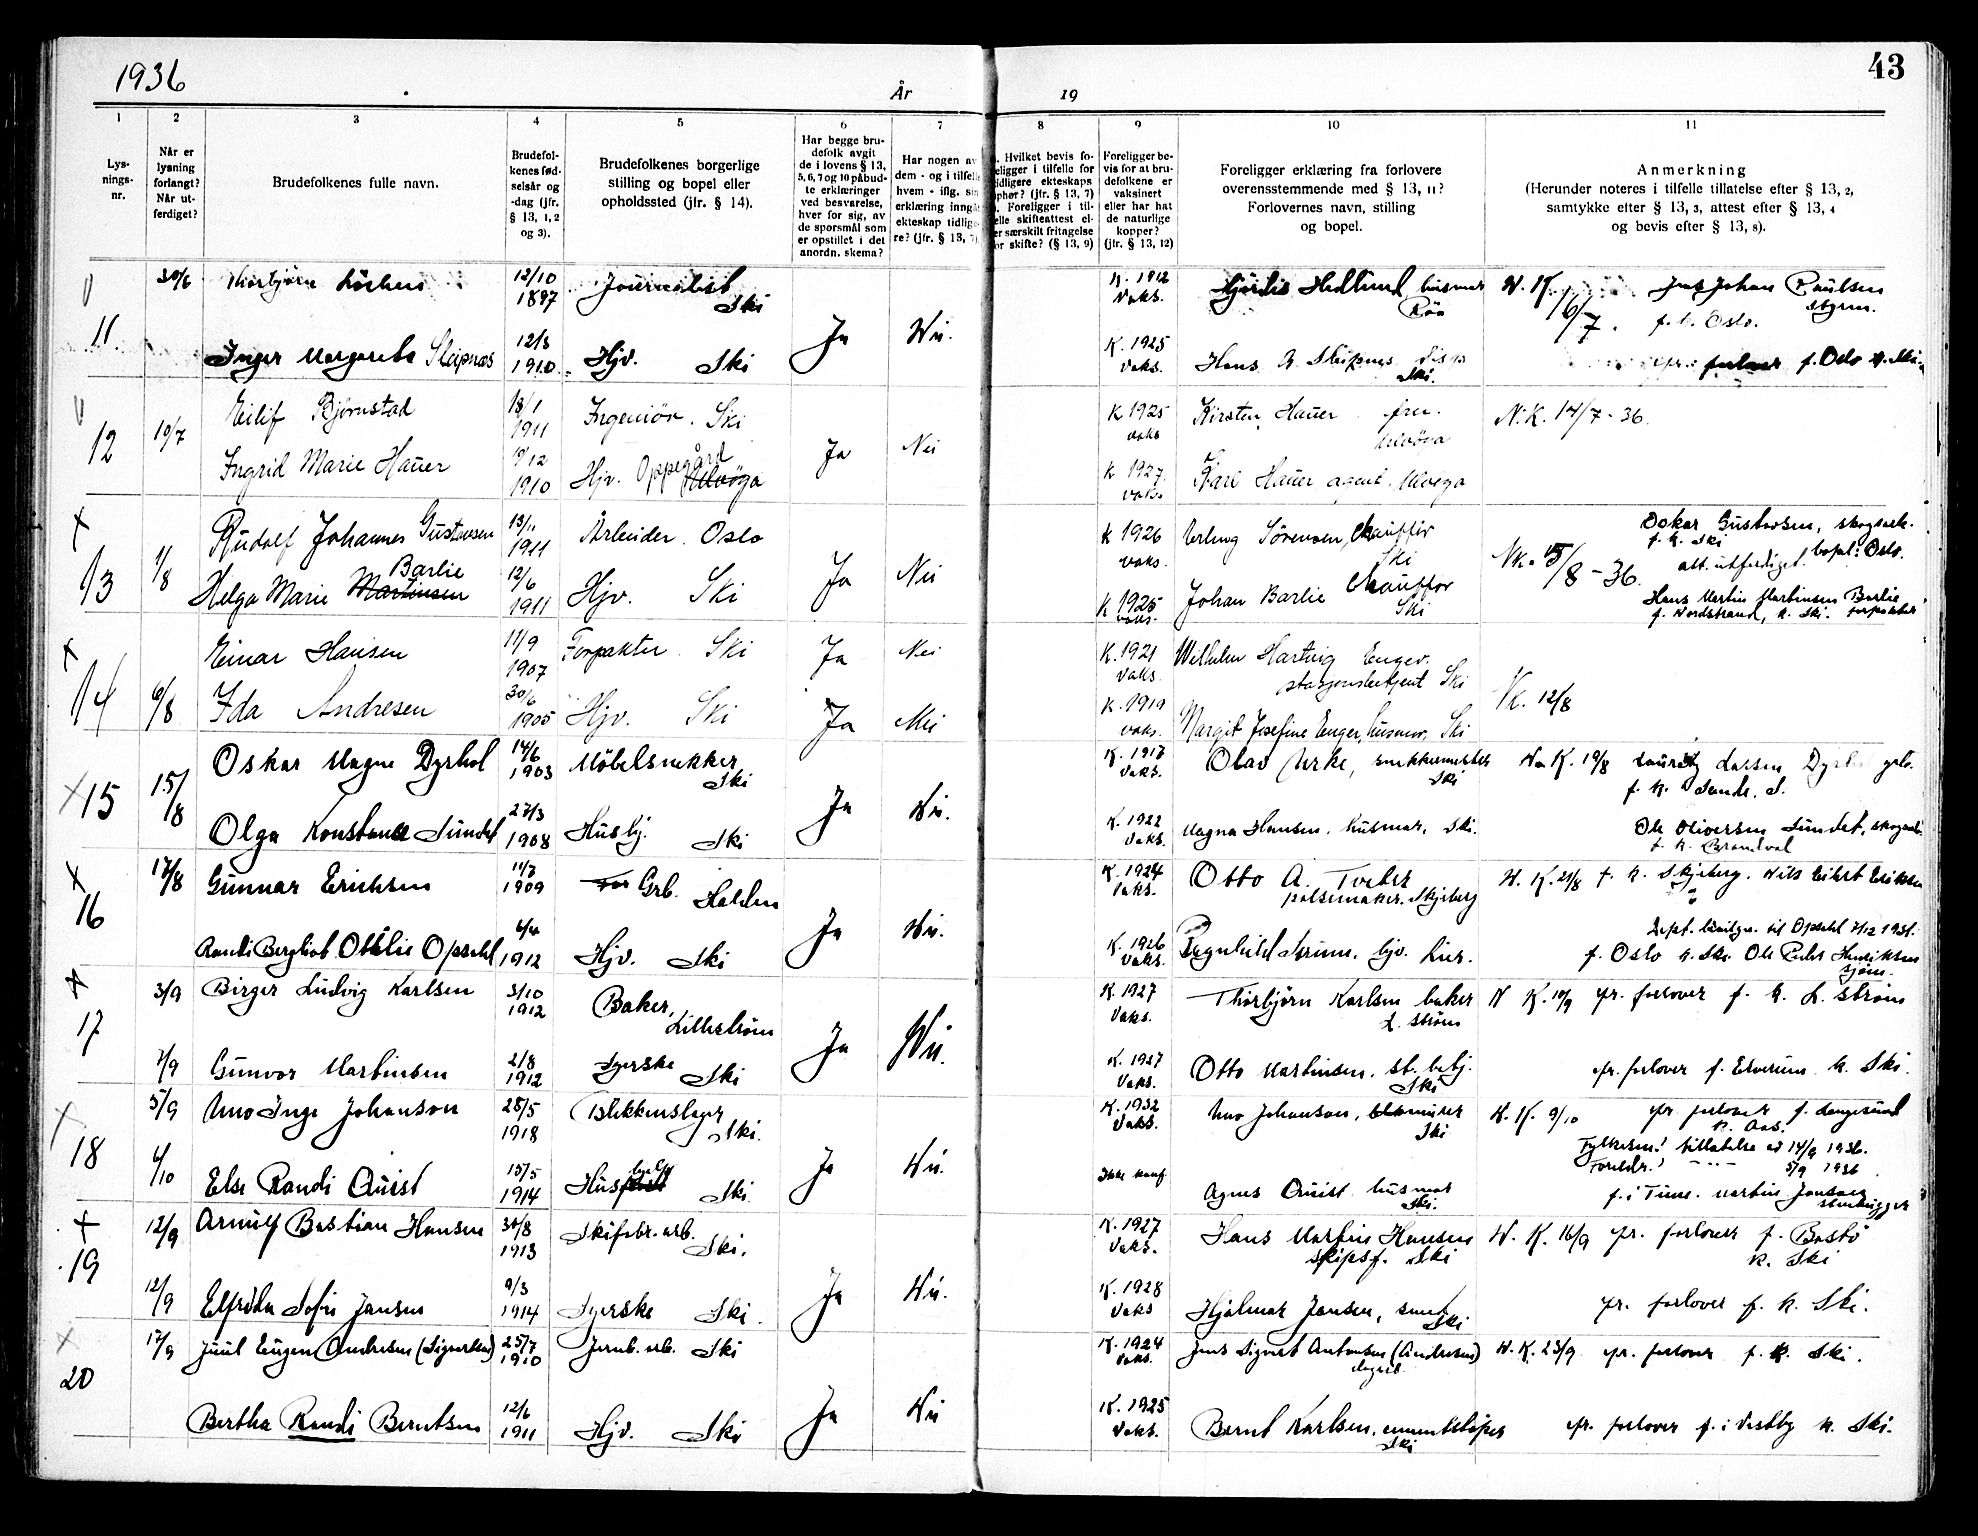 1936
År
19
43
1 2 3 4 5 6 7 8 9 10 11
Lys-
nings-
nr.
Når er
lysning
forlangt?
Når ut-
ferdiget?
Brudefolkenes fulle navn.
Brudefol-
kenes fød-
selsår og
-dag (jfr.
§ 13, 1, 2
og 3).
Brudefolkenes borgerlige
stilling og bopel eller
opholdssted (jfr. § 14).
Har begge bru-
defolk avgit
de i lovens § 13,
5, 6, 7 og 10 påbud-
te erklæringer
ved besvarelse,
hver for sig, av
de spørsmål som
er opstillet i det
anordn. skema?
Har nogen av
dem - og i tilfelle
hvem - iflg. sin
erklæring inngå
ekteskap tidlige
re? (jfr. § 13, 7)
Hvilket bevis fo-
eligger i tilfelle for
idligere ekteskaps
phør? (jfr. § 13, 7)
Foreligger i til-
elle skifteattest el-
er særskilt fritagelse
or skifte? (§ 13, 9)
Foreligger be-
vis for at bru-
defolkene er
vaksinert
eller har hat
de naturlige
kopper?
(jfr. § 13, 12)
Foreligger erklæring fra forlovere
overensstemmende med § 13, 11?
Forlovernes navn, stilling
og bopel.
Anmerkning
(Herunder noteres i tilfelle tillatelse efter § 13, 2,
samtykke efter § 13, 3, attest efter § 13, 4
og bevis efter § 13, 8).
11 30/6 12/10 1897 Journalist Ski K. 1912 Vaks. Hjördis Hedlund, husmor N. K. 6/7. Johan Paulsen
f. i Oslo.
Inger Margarethe Sleipnæs 12/3 1910. Hjv. Ski Ja Nei. K. 1925 Vaks. Hans Ski. forlover f. Oslo
12 10/7 Eilif Bjørnstad 18/1 1911 Ingeniør. Ski K 1925 vaks Kirsten Hauer fru. N.K. 14/7-36.
Ingrid Marie Hauer 19/12 1910 Hjv. Oppegård Ja Nei K 1927. vaks. Karl Hauer agent.
13 1/8 Rudolf Johannes Gustavsen 13/11 1911 Arbeider. Oslo K 1926 vaks. Erling Sørensen, Chauffør Ski Nk. 15/8-36. Oskar Gustavsen, skogsarb.
f. k. Ski
att. utferdiget. bopel: Oslo.
Helga Marie Barlie Martinsen 12/6 1911 Hjv. Ski Ja Nei K 1925 vaks. Johan Barlie Chauffør Ski Hans Martin Martinsen Barlie
f. Nordstrand, k. Ski. forpakter
14 6/8 Einar Hansen 11/9 1907 Forpakter. Ski Ja Nei K. 1921 Vaks. Wilhelm Hartvig Enger.
stasjonsbetjent Ski
Ida Andresen 30/6 1905 Hjv. Ski Ja Nei K. 1919 vaks. Margit Josefine Enger, husmor, Ski Nk. 12/8
15 15/8 Oskar Magne Dyrhol 14/6 1903 Møbelsnekker Ski K. 1917 Vaks. Olav Urke, snekkermester Ski K. 19/8 Lauritz Larsen f. k.
Olga Konstanse Sundet 27/3 1908 Husbj. Ski Ja Nei. K. 1922 Vaks. Magna Hansen. husmor, Ski. Ole Oliversen Sundet,
f. k. Brandval
16 17/8 Gunnar Eriksen 11/7 1909 Grb. Halden K. 1924 Vaks. Otto A. Tveter
pølsemaker. Skjeberg N. K. 21/8 f. k. Skjeberg. Nils Eilert Eriksen
Randi Bergliot Ottilie Opsahl 6/4 1912 Hjv. Ski Ja Nei. K. 1926 Vaks. hjv. her. til Opsahl 7/12 1931.
f. Oslo k. Ski Ole Peder Henriksen
sjøm.
17 3/9 Birger Ludvig Karlsen 3/10 1912 Baker, Lillestrøm K. 1927 Vaks. Thorbjørn Karlsen baker L. strøm N K. 10/9 pr. forlover f. k. L. strøm
7/9 Gunvor Martinsen 2/8 1912 Syerske Ski Ja Nei. K. 1927 Vaks. Otto Martinsen. st. betj. Ski pr. forlover f. Elverum k. Ski.
18 5/9 Uno Inge Johanson 28/5 1918 Blikkenslager Ski. K. 1932 Vaks. Uno Johanson, Ski N. K. 9/10 pr forlover f. Langesund
k. Aas.
Fylkesm! tillatelse ad 14/9 1936.
Foreldr.! — " — 5/9 1936
6/10 Else Randi Quist 15/5 1914 Ski. Ja Nei. Ikke konf. Agnes Quist husmor Ski. f. i Tune. Martin Jonsen
stenhugger
19 12/9 Arnulf Bastian Hansen 30/8 1913 Skifabr. arb. Ski. K. 1927 Vaks. Hans Martin Hansen
skipsf. Ski N. K. 16/9 pr. forlover f. Bastö
k. Ski
12/9 Elfrida Sofie Jansen 9/3 1914 Syerske Ski. Ja Nei. K. 1928 Vaks Hjalmar Jansen, smed Ski pr. forlover f. k. Ski.
20 17/9 Juul Eugen Andresen (Sigvartsen) 25/7 1910 Jernb. arb. Ski K. 1924 Vaks. Jens Sigvart Antonsen (Andresen) N. K. 23/9 pr. forlover f. k. Ski.
Bertha Randi Berntsen 12/6 1911 Hjv. Ski Ja Nei K. 1925 Vaks. Bernt Karlsen. Ski pr. forlover f. i Vestby k. Ski.